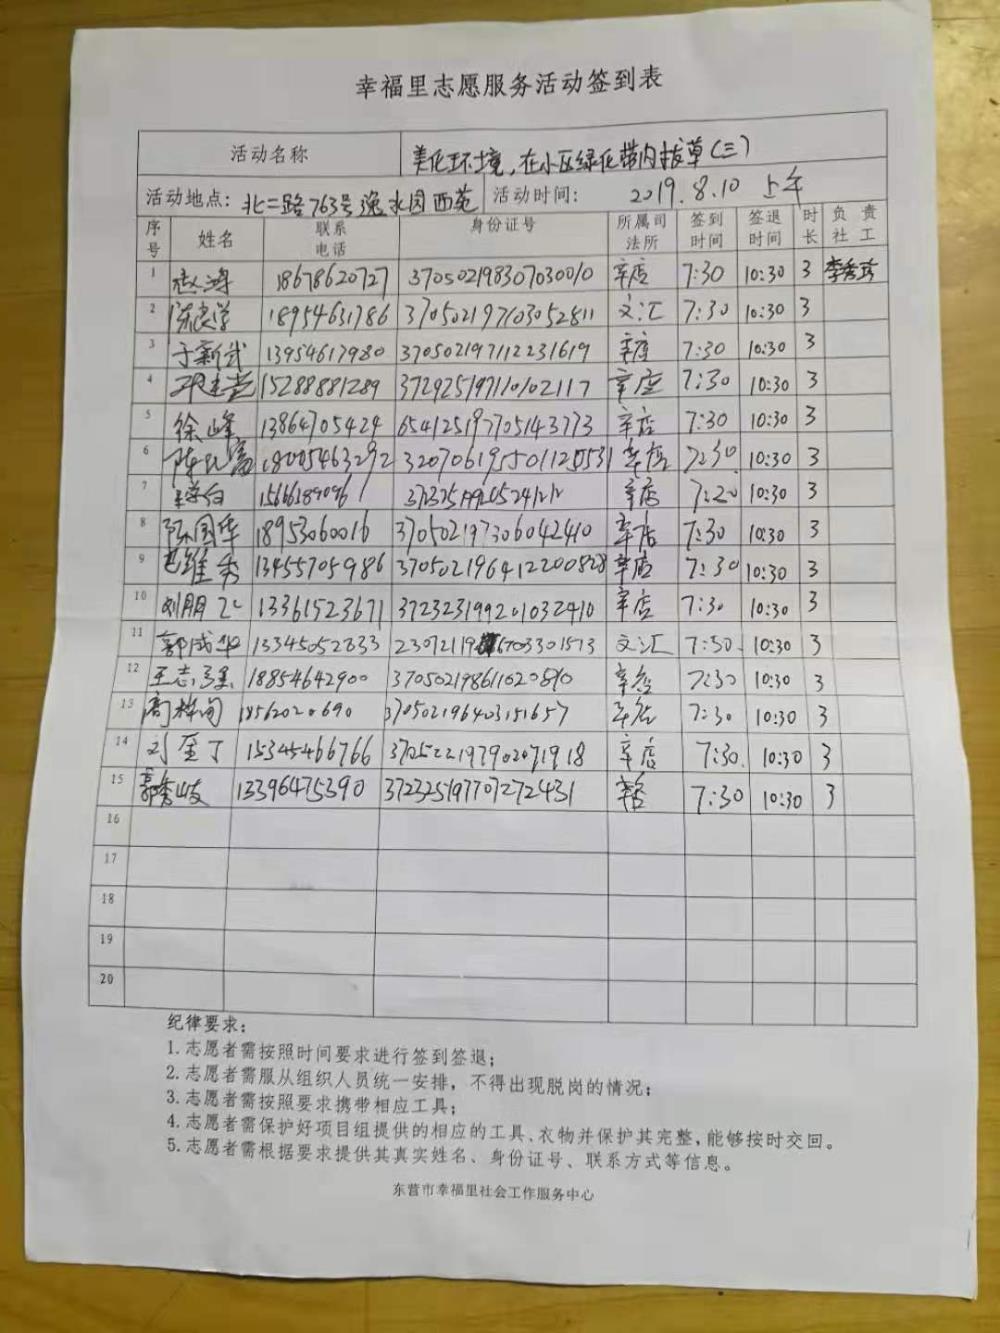 幸福里志愿服务活动签到表
活动名称 美化环境,在小区绿化带内拔草(三)
活动地点: 北二路763号逸水园西苑 活动时间: 2019.8.10 上午
序号 姓名 联系电话 身份证号 所属司法所 签到时间 签退时间 时长 负责社工
1 赵鸿 18678620727 370502198307030010 辛店 7:30 10:30 3 李秀珍
2 陈良学 18954631786 370502197103052811 文汇 7:30 10:30 3
3 于新武 13954617980 370502197112231619 辛店 7:30 10:30 3
4 15288881289 372925197110102117 辛店 7:30 10:30 3
5 徐峰 13864705424 654125197705143773 辛店 7:30 10:30 3
6 18005463292 辛店 7:30 10:30 3
7 辛店 7:20 10:30 3
8 陈国华 18953060016 370502197306042410 辛店 7:30 10:30 3
9 13455705986 370502196412200828 辛店 7:30 10:30 3
10 刘朋飞 13361523671 372323199201032410 辛店 7:30 10:30 3
11 郭成华 文汇 7:30 10:30 3
12 王志强 18854642900 辛店 7:30 10:30 3
13 18562020690 370502196403151657 辛店 7:30 10:30 3
14 刘金丁 15345466766 370522197902071918 辛店 7:30 10:30 3
15 郭秀岐 13396475390 372325197707272431 辛店 7:30 10:30 3
16
17
18
19
20
纪律要求:
1.志愿者需按照时间要求进行签到签退;
2.志愿者需服从组织人员统一安排，不得出现脱岗的情况;
3.志愿者需按照要求携带相应工具;
4.志愿者需保护好项目组提供的相应的工具、衣物并保护其完整,能够按时交回。
5.志愿者需根据要求提供其真实姓名、身份证号、联系方式等信息。
东营市幸福里社会工作服务中心